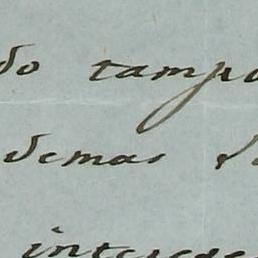 do tampo
demas d
interede